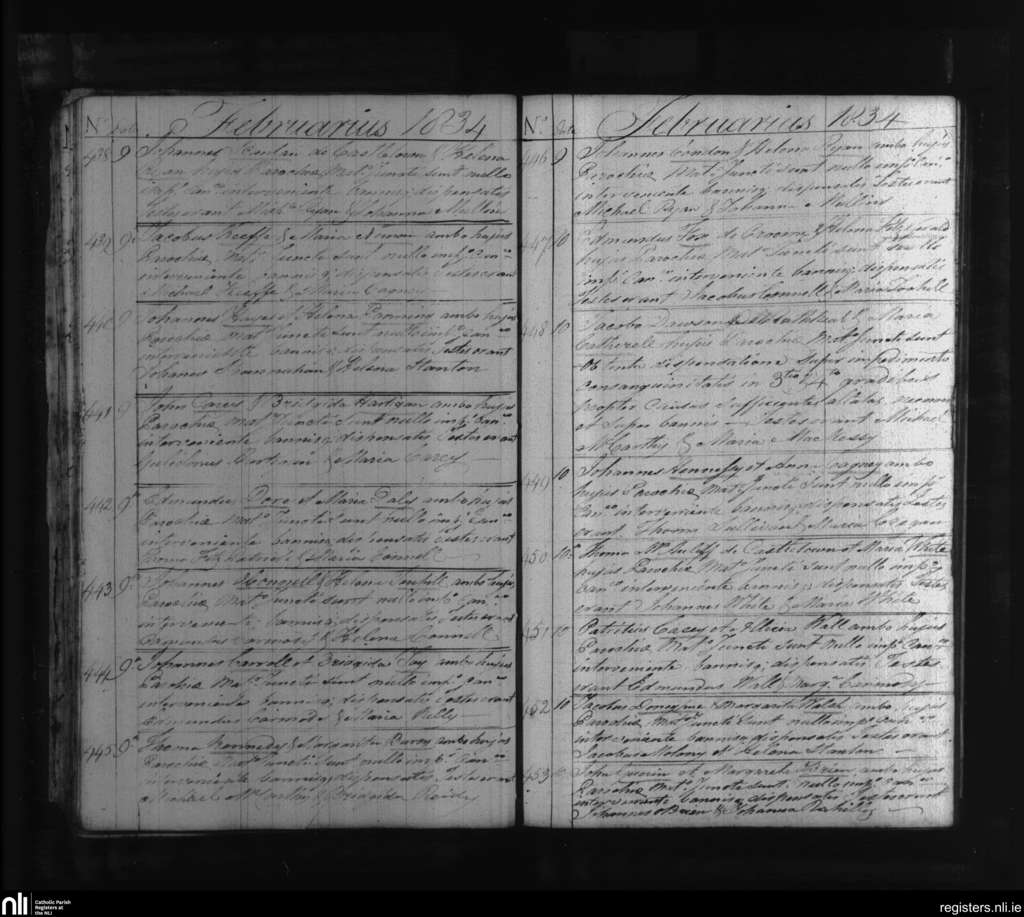 No. Februarius 1834
438 9 Johannes Scanlan de Castletown & Helena
Ryan hujus Parochiæ Mat. Juncti sunt nullo
imp. Can. interveniente bannisq dispensatis
Testes erant Mich. Ryan & Johanna Mullins
439 9 Jacobus Keeffe & Maria ambo hujus
Parochiæ Mat. Juncti sunt nullo imp. Can
interveniente bannisq dispensatis Testes erant
Michael Keeffe & Maria Cagney
440 9 Johannes Hayes & Helena ambo hujus
Parochiæ Mat. Juncti sunt nullo imp. Can.
interveniente bannisq dispensatis Testes erant
Johannes & Helena Stanton
441 9 John Carey & Brigida Hartigan ambo hujus
Parochiæ Mat. Juncti Sunt nullo imp. Can.
interveniente bannisq dispensatis Testes erant
Gulielmus & Maria Carey
442 9 Edmundus Dore et Maria Daly ambo hujus
Parochiæ Mat. Juncti sunt nullo imp. Can.
interveniente bannisq dispensatis Testes erant
Fitzpatrick & Maria Connell
443 9 Johannes & Helena ambo hujus
Parochiæ Mat. Juncti sunt nullo imp. Can.
interveniente bannisq dispensatis Testes erant
& Helena Connell
444 9 Johannes Carroll et Brigida Joy ambo hujus
Parochiæ Mat. Juncti sunt nullo imp. Can.
interveniente bannisq dispensatis Testes erant
Edmundus & Maria Kelly
445 9 Thoma Kennedy & Margarita ambo hujus
Parochiæ Mat. Juncti sunt nullo imp. Can.
interveniente bannisq dispensatis Testes erant
Michael McCarthy & Brigida
No. Februarius 1834
446 9 Johannes Condon & Helena Ryan ambo hujus
Parochiæ Mat. Juncti sunt nullo imp. Can.
interveniente bannisq dispensatis Testes erant
Michael Ryan & Johanna Mullins
447 10 Edmundus Fox de Croom & Helena Fitzgerald
hujus Parochiæ Mat. Juncti sunt nullo
imp. Can. interveniente bannisq dispensatis
Testes erant Jacobus Connell & Maria
448 10 Jacobo Dawson & Maria
hujus Parochiæ Mat. Juncti sunt
Obtenta dispensatione Super impedimento
consanguinitatis in 3tio 4to gradibus
propter Causas Sufficientes allatas
et Super bannis Testes erant Michael
McCarthy & Maria Mackessy
449 10 Johannes Hennessy et Ann Cagney ambo
hujus Parochiæ Mat. Juncti Sunt nullo imp.
Can. interveniente bannisq dispensatis Testes
erant Thoma Sullivan & Maria
450 10 Thoma McAuliff de Castletown et Maria White
hujus Parochiæ Mat. Juncti sunt nullo imp.
Can. interveniente bannisq dispensatis Testes
erant Johannes White & Maria White
451 10 Patritius Casey et Wall ambo hujus
Parochiæ Mat. Juncti Sunt nullo imp. Can.
interveniente bannisq dispensatis Testes
erant Edmundus Wall & Marg. Kennedy
452 10 Jacobus & Margarita ambo hujus
Parochiæ Mat. Juncti Sunt nullo imp. Can.
interveniente bannisq dispensatis Testes erant
Jacobus Molony et Helena Stanton
453 10 John Cronin et Margareta Brien ambo hujus
Parochiæ Mat. Juncti sunt nullo imp. Can.
interveniente bannisq dispensatis Testes erant
Johannes OBrien & Johanna
nli Catholic Parish
Registers at
the NLI
registers.nli.ie